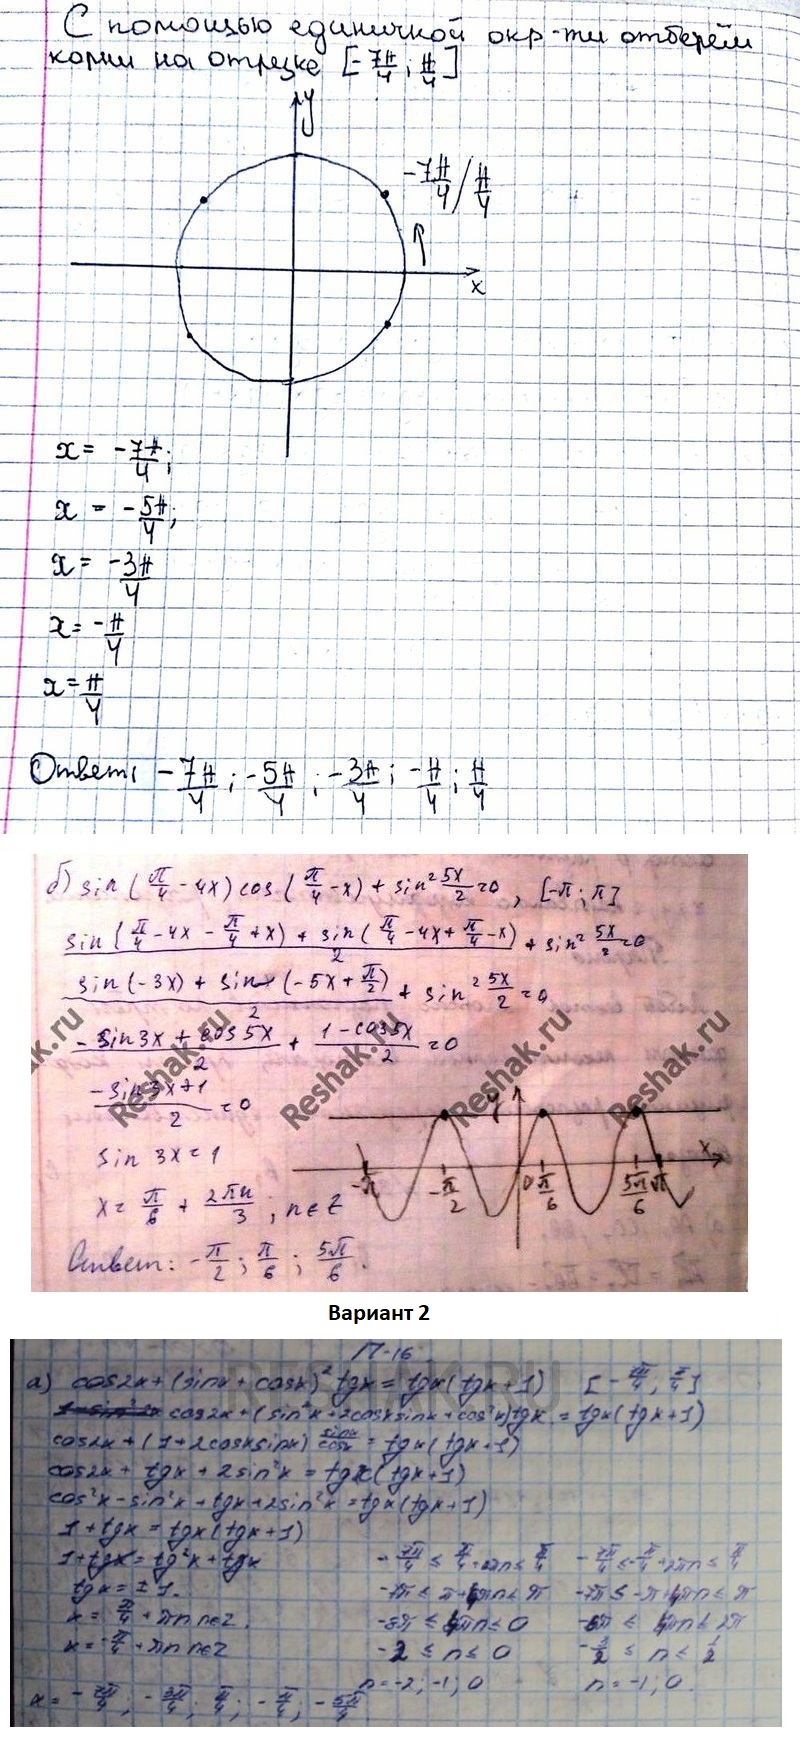 С помощью единичной окр-ти отберём
корни на отрезке [-7π/4; π/4]
y
-7π/4 / π/4
x
x = -7π/4;
x = -5π/4;
x = -3π/4
x = -π/4
x = π/4
Ответ: -7π/4; -5π/4; -3π/4; -π/4; π/4
б) sin(π/4 - 4x) cos(π/4 - x) + sin² 5x/2 = 0, [-π; π]
(sin(π/4 - 4x - π/4 + x) + sin(π/4 - 4x + π/4 - x))/2 + sin² 5x/2 = 0
(sin(-3x) + sin(-5x + π/2))/2 + sin² 5x/2 = 0
(-sin3x + cos5x)/2 + (1 - cos5x)/2 = 0
(-sin3x + 1)/2 = 0
sin 3x = 1
x = π/6 + 2πn/3; n ∈ Z
y
x
-π -π/2 0 π/6 5π/6 π
Ответ: -π/2; π/6; 5π/6.
Reshak.ru Reshak.ru Reshak.ru Reshak.ru
Вариант 2
П-16
RESHAK.RU
а) cos2x + (sinx + cosx)² tgx = tgx(tgx + 1) [-7π/4, π/4]
cos2x + (sin²x + 2cosxsinx + cos²x)tgx = tgx(tgx + 1)
cos2x + (1 + 2cosxsinx) sinx/cosx = tgx(tgx + 1)
cos2x + tgx + 2sin²x = tgx(tgx + 1)
cos²x - sin²x + tgx + 2sin²x = tgx(tgx + 1)
1 + tgx = tgx(tgx + 1)
1 + tgx = tg²x + tgx
tgx = ±1.
x = π/4 + πn n∈Z.
x = -π/4 + πn n∈Z
-7π ≤ π + 4πn ≤ π
-8π ≤ 4πn ≤ 0
-2 ≤ n ≤ 0
n = -2; -1; 0
-7π ≤ -π + 4πn ≤ π
-6π ≤ 4πn ≤ 2π
-3/2 ≤ n ≤ 1/2
n = -1; 0.
x = -7π/4; -3π/4; π/4; -π/4; -5π/4